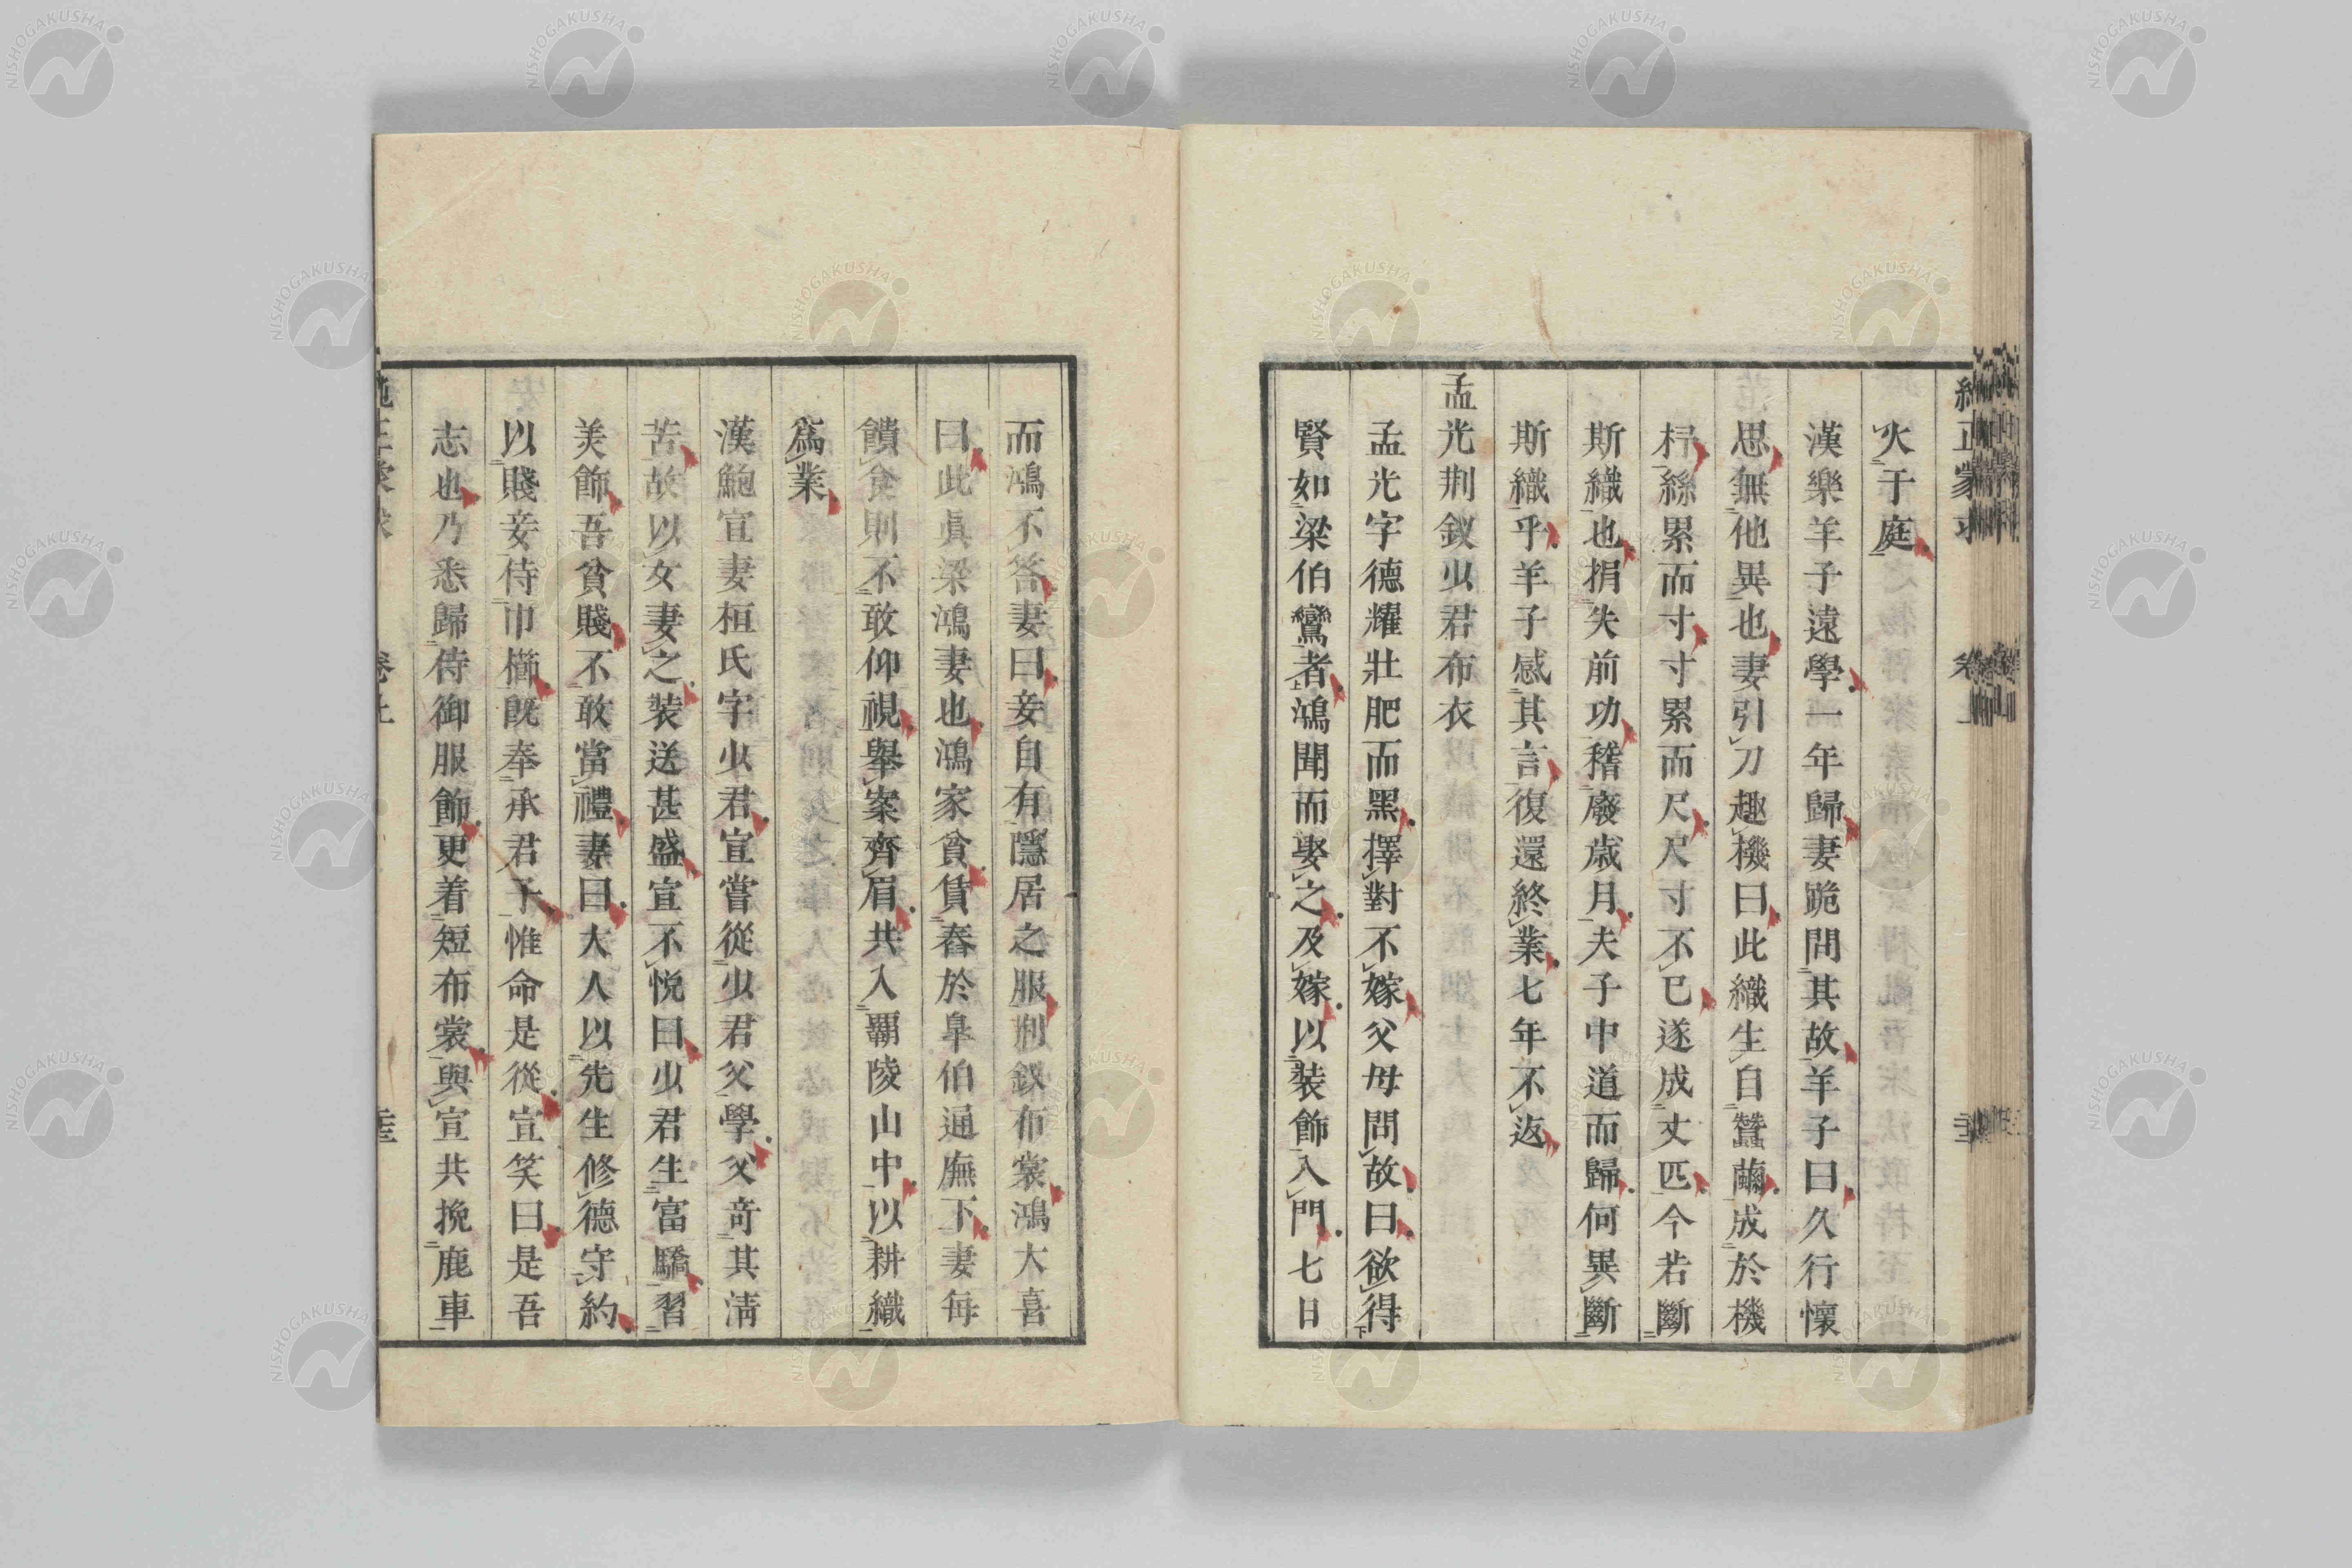 火于庭
漢樂羊子遠學一年歸妻跪問其故羊子曰久行懷
思無他異也妻引刀趣機曰此織生自蠶繭成於機
杼絲累而寸寸累而尺尺寸不已遂成丈匹今若斷
斯織也捐失前功稽廢歳月夫子中道而歸何異斷
斯織乎羊子感其言復還終業七年不返
孟光荆釵少君布衣
孟光字德耀壯肥而黑擇對不嫁父母問故曰欲得
賢如梁伯鸞者鴻聞而娶之及嫁以装飾入門七日
而鴻不答妻曰妾自有隱居之服荆釵布裳鴻大喜
曰此眞梁鴻妻也鴻家貧賃舂於皐伯通廡下妻每
饋食則不敢仰視舉案齊眉共入覇陵山中以耕織
爲業
漢鮑宣妻桓氏字少君宣嘗從少君父學父奇其淸
苦故以女妻之装送甚盛宣不悦曰少君生富驕習
美飾吾貧賤不敢當禮妻曰大人以先生修德守約
以賤妾侍巾櫛既奉承君子惟命是從宣笑曰是吾
志也乃悉歸侍御服飾更着短布裳與宣共挽鹿車
卷上
NISHOGAKUSHA